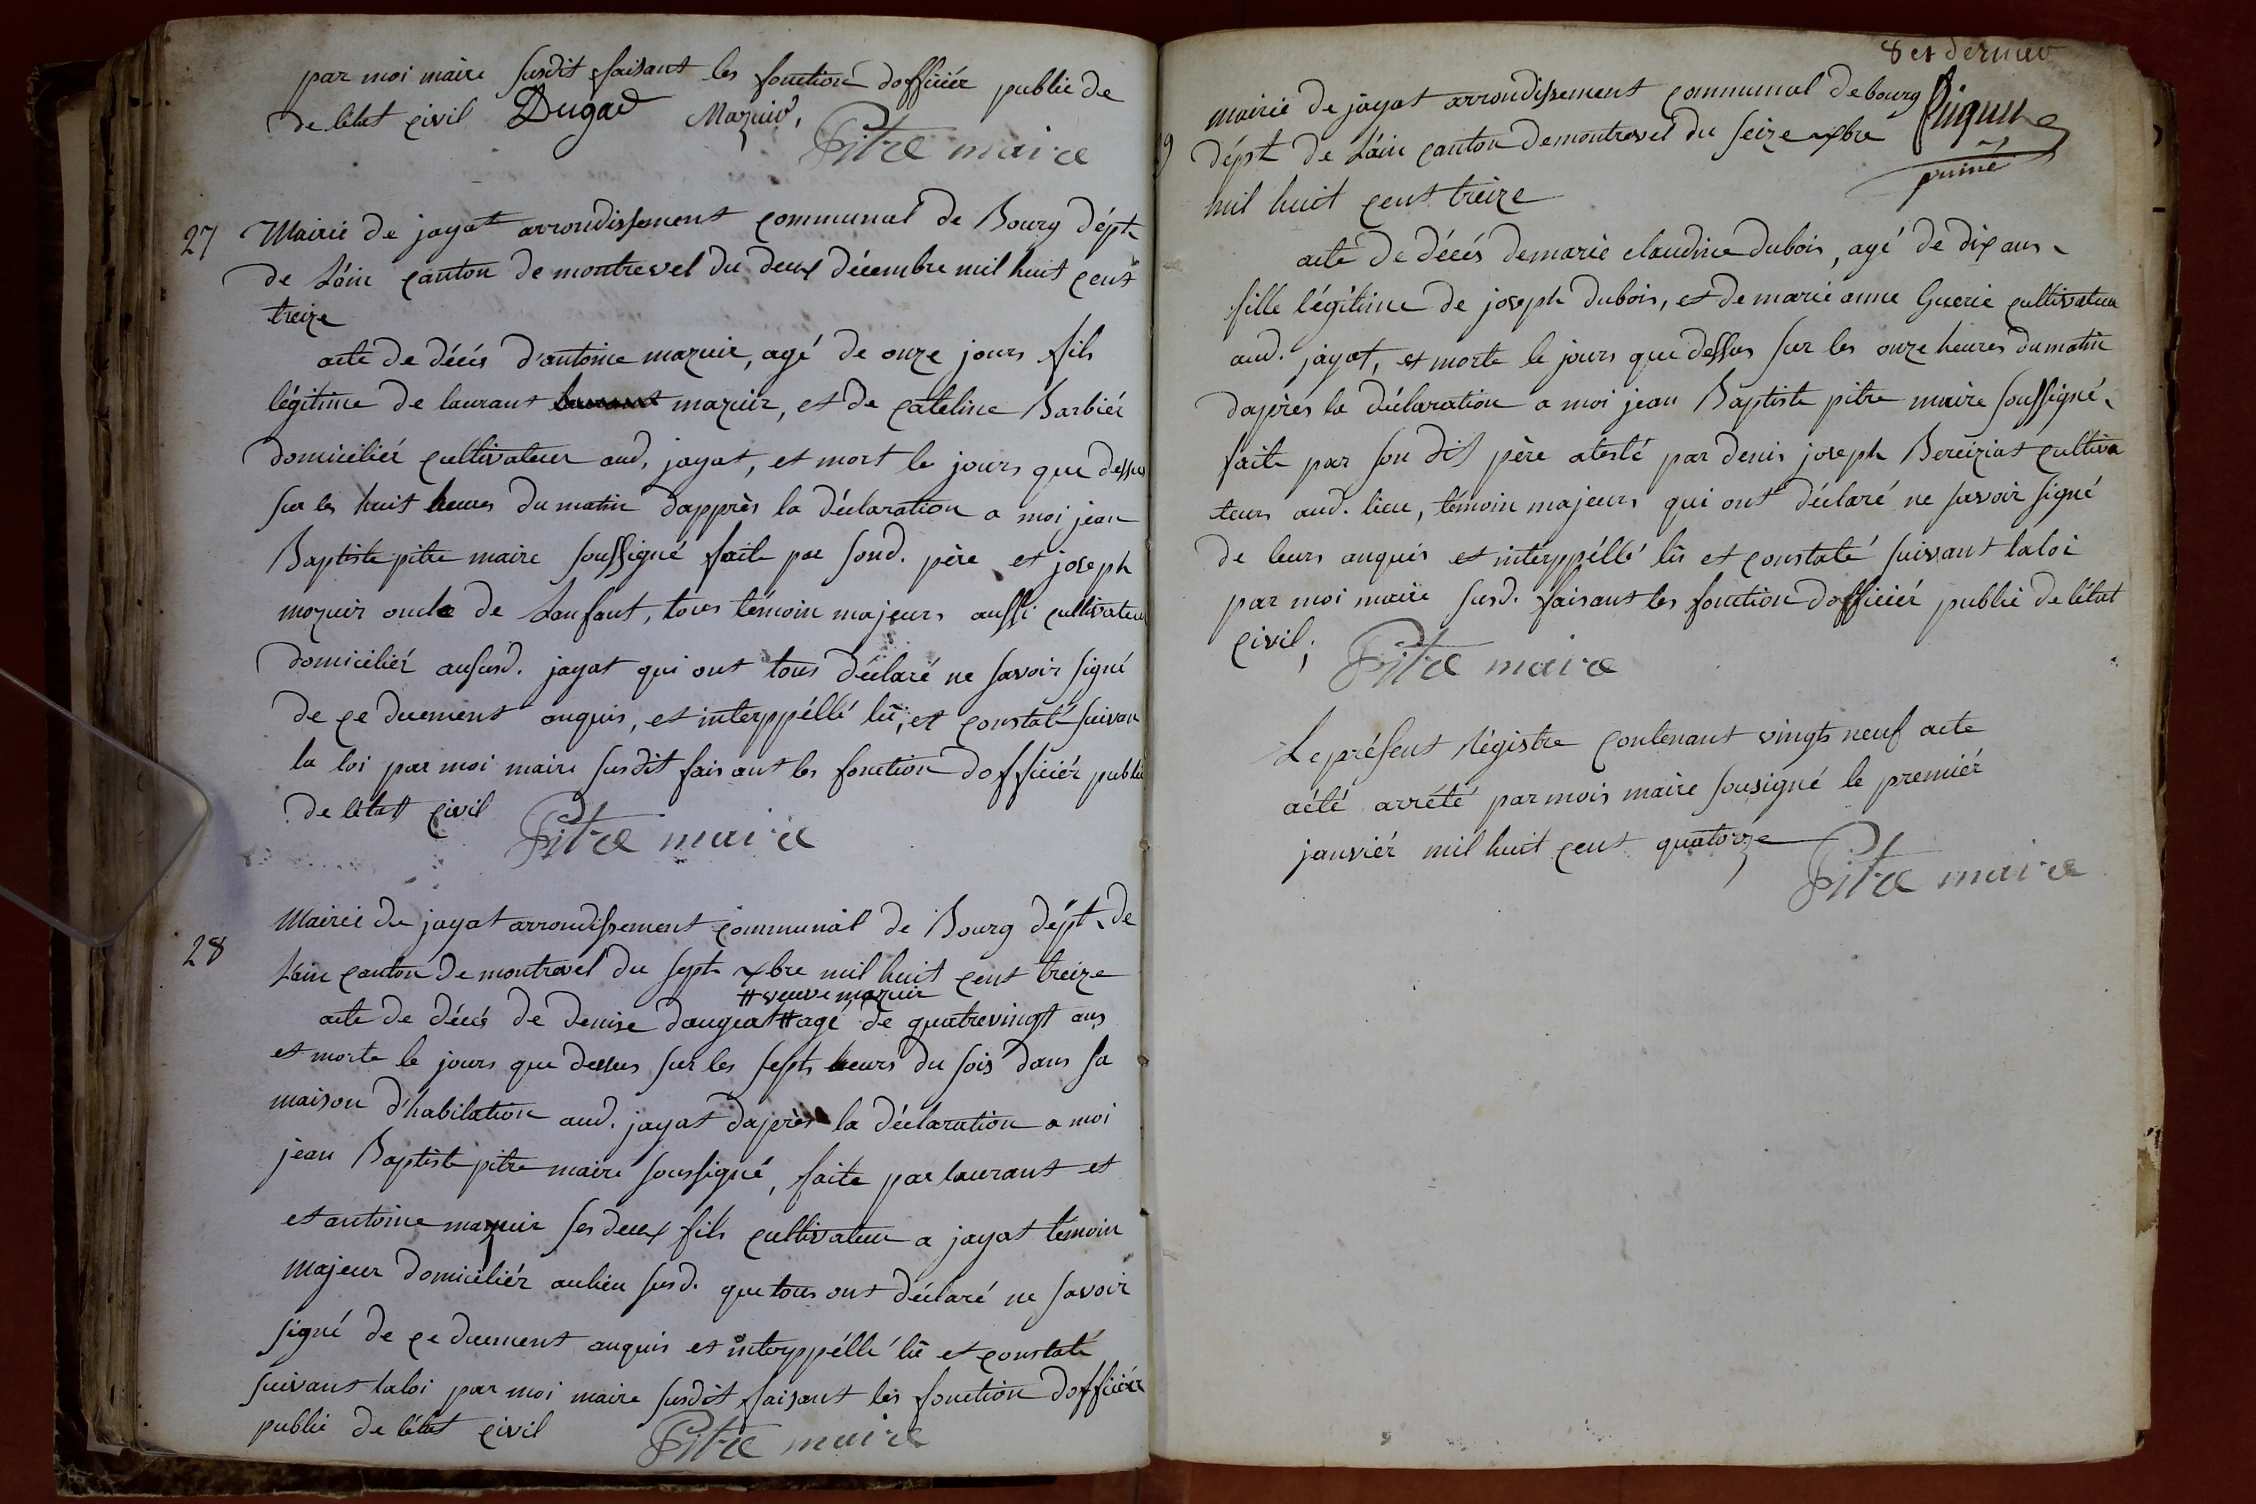 par moi maire susdit faisant les fonction dofficiér public de
de létat civil Dugad Mazuir,
Pitre maire
27 Mairie de jayat arrondissement communal de Bourg dépt.
de Láin canton de montrevel du deux décembre mil huit cent
treize
acte de décés d'antoine mazuir, agé de onze jours fils
légitime de laurant laurant mazuir, et de cateline Barbiér
domiciliér cultivateur aud. jayat, et mort le jours que dessus
sur les huit heures du matin dapprès la déclaration a moi jean
Baptiste pitre maire soussigné faite par sond. père et joseph
mazuir oncle de Lanfant, tous témoin majeurs aussi cultivateur
domiciliér aususd. jayat qui ont tous déclaré ne savoir signé
de ce duement anquis, et interppéllé lû, et constaté suivan
la loi par moi maire susdit faisant les fonction dofficiér public
de létat civil
Pitre maire
28 Mairie de jayat arrondissement communal de Bourg dépt. de
Lain canton de montrevel du sept xbre mil huit cent treize
# veuve mazuir
acte de décés de denise daugeat # agé de quatrevingt ans
et morte le jours que dessus sur les sept heurs du sois dans sa
maison d'habitation aud. jayat dajprès la déclaration a moi
jean Baptiste pitre maire soussigné, faite par laurant et
et antoine mazuir ses deux fils cultivateur a jayat témoin
majeur domiciliér aulieu susd. que tous ont déclaré ne savoir
signé de ce duement anquis et interppéllé lû et constaté
suivant laloi par moi maire susdit faisant les fonction dofficiér
public de létat civil
Pitre maire
8 et dernier
mairie de jayat arrondissement communal de bourg
9 dépt. de Láin canton demontrevel du seize xbre
mil huit cent treize
acte de décés demarie claudine dubois, agé de dix ans
fille légitime de joseph dubois, et de marie anne Guerie cultivateur
aud. jayat, et morte le jours que dessus sur les onze heures dumatin
dajprès la déclaration a moi jean Baptiste pitre maire soussigné
faite par son dit père atesté par denis joseph Bereiziat cultiva
teurs aud. lieu, témoin majeurs qui ont déclaré ne savoir signé
de leurs anquis et interppéllé lû et constaté suivant laloi
par moi maire susd. faisant les fonction dofficiér public de létat
civil;
Pitre maire
Le présent Régistre contenant vingts neuf acte
aété arrété par mois maire sousigné le premiér
janviér mil huit cent quatorze
Pitre maire